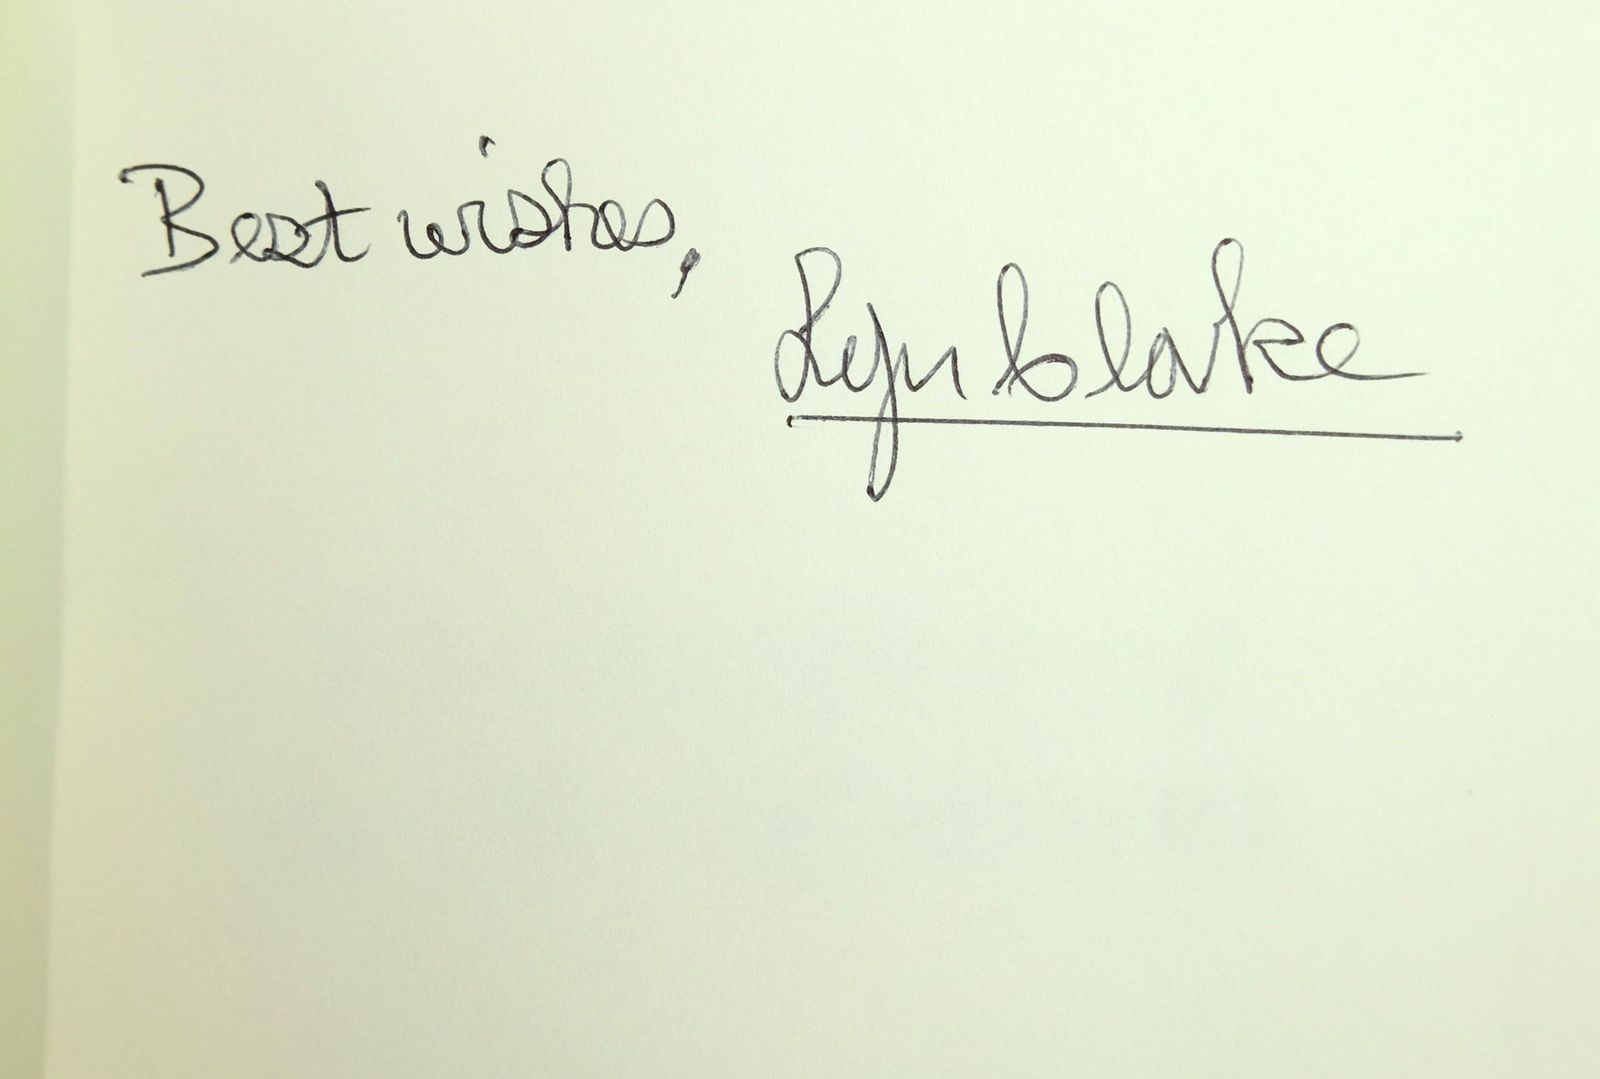 Best wishes,
Lyn blake